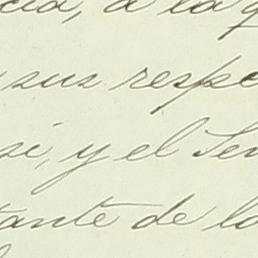 cia, a la q
sus respe
si, y el Sen
tante de la